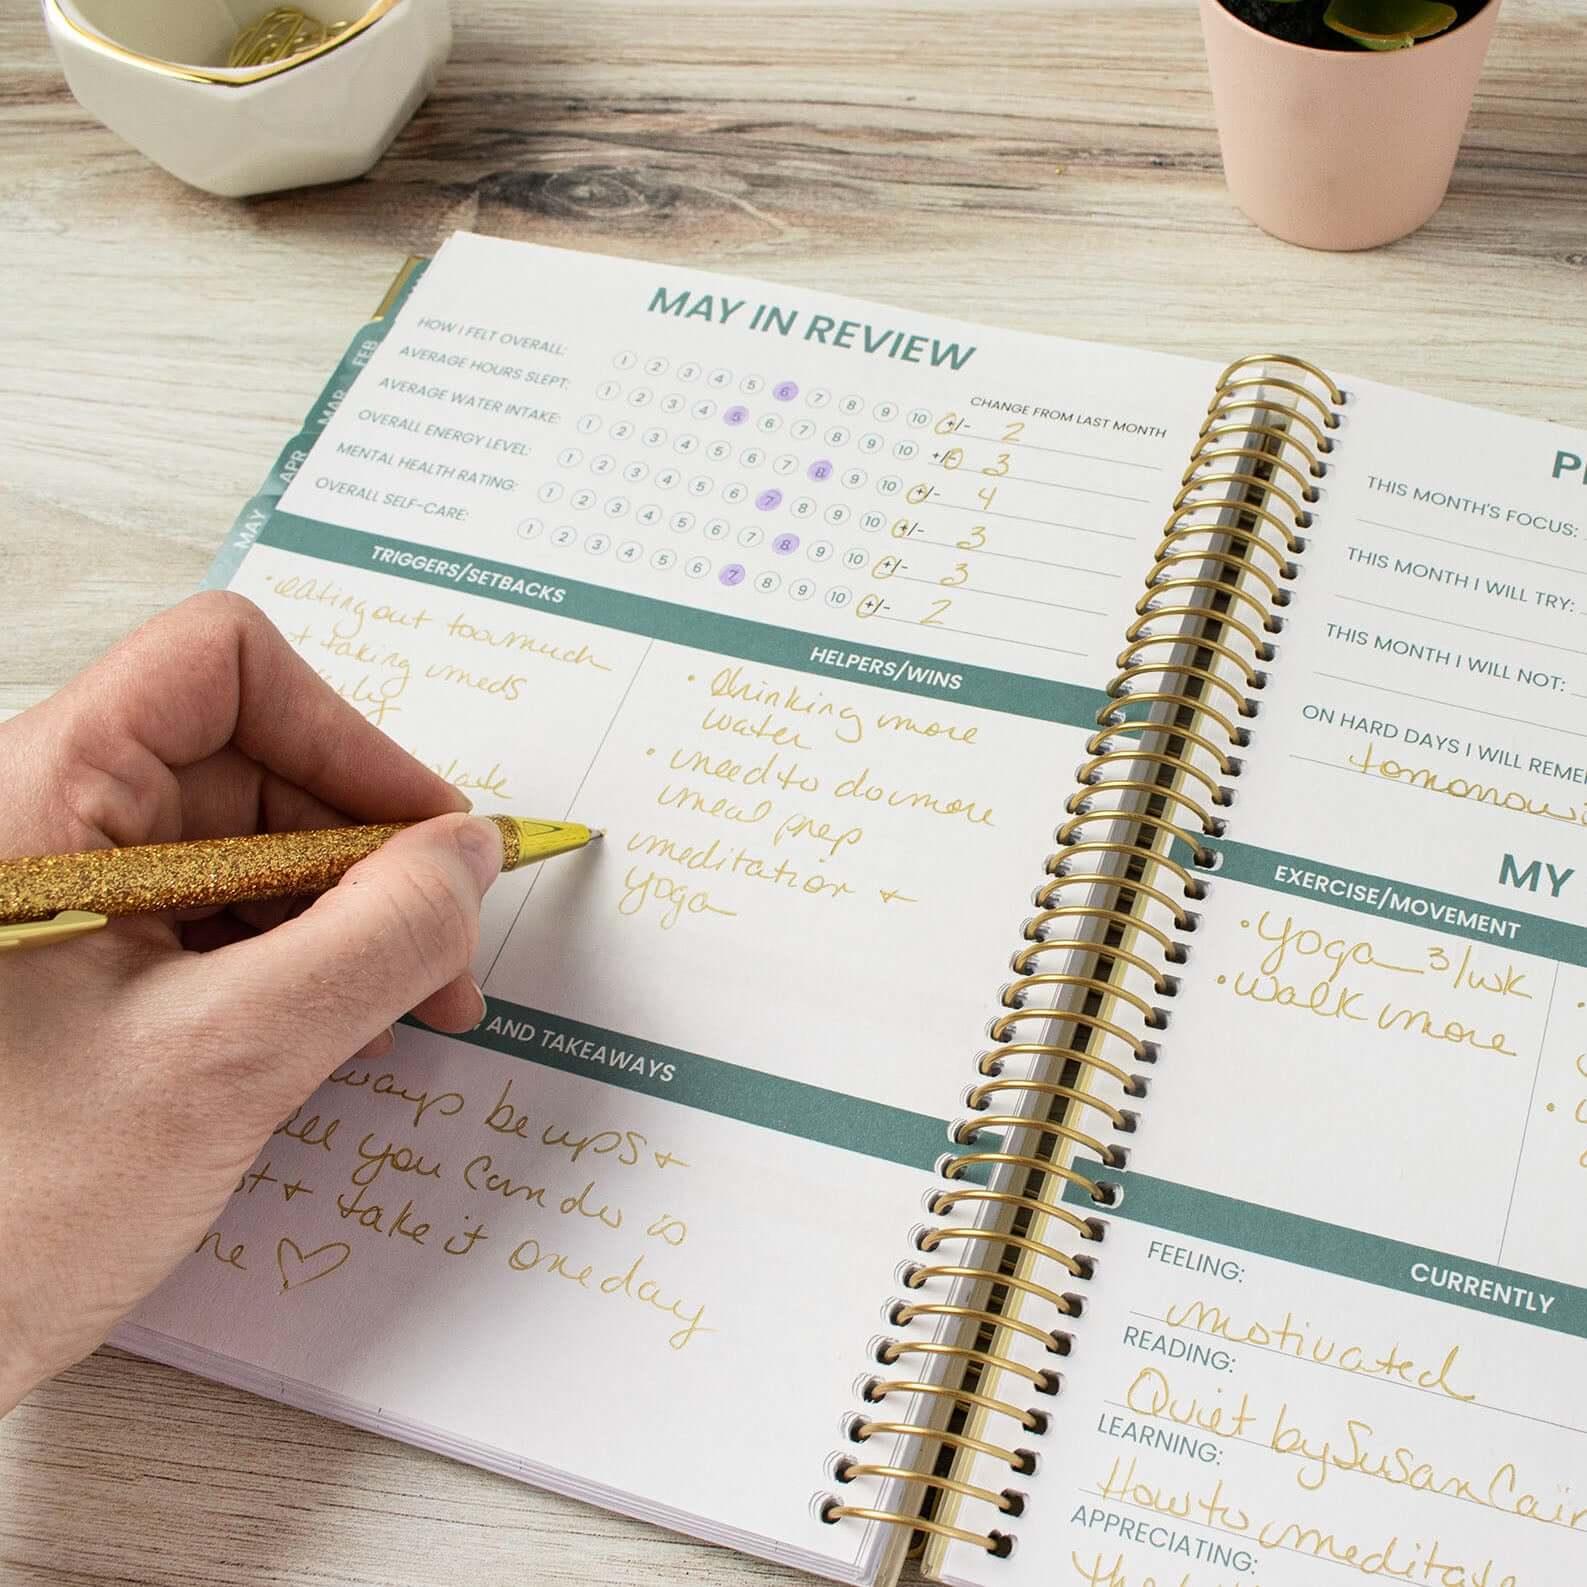 MAY IN REVIEW
CHANGE FROM LAST MONTH
HOW I FELT OVERALL: 1 2 3 4 5 6 7 8 9 10 +/- 2
AVERAGE HOURS SLEPT: 1 2 3 4 5 6 7 8 9 10 +/- 3
AVERAGE WATER INTAKE: 1 2 3 4 5 6 7 8 9 10 +/- 4
OVERALL ENERGY LEVEL: 1 2 3 4 5 6 7 8 9 10 +/- 3
MENTAL HEALTH RATING: 1 2 3 4 5 6 7 8 9 10 +/- 3
OVERALL SELF-CARE: 1 2 3 4 5 6 7 8 9 10 +/- 2
FEB
MAR
APR
MAY
TRIGGERS/SETBACKS
• eating out too much
taking meds
HELPERS/WINS
• drinking more
water
• need to do more
meal prep
meditation +
yoga
AND TAKEAWAYS
be ups +
you can do is
+ take it one day
THIS MONTH'S FOCUS:
THIS MONTH I WILL TRY:
THIS MONTH I WILL NOT:
ON HARD DAYS I WILL
MY
EXERCISE/MOVEMENT
• yoga 3/wk
• walk more
CURRENTLY
FEELING:
motivated
READING:
Quiet by Susan
LEARNING:
How to meditate
APPRECIATING: